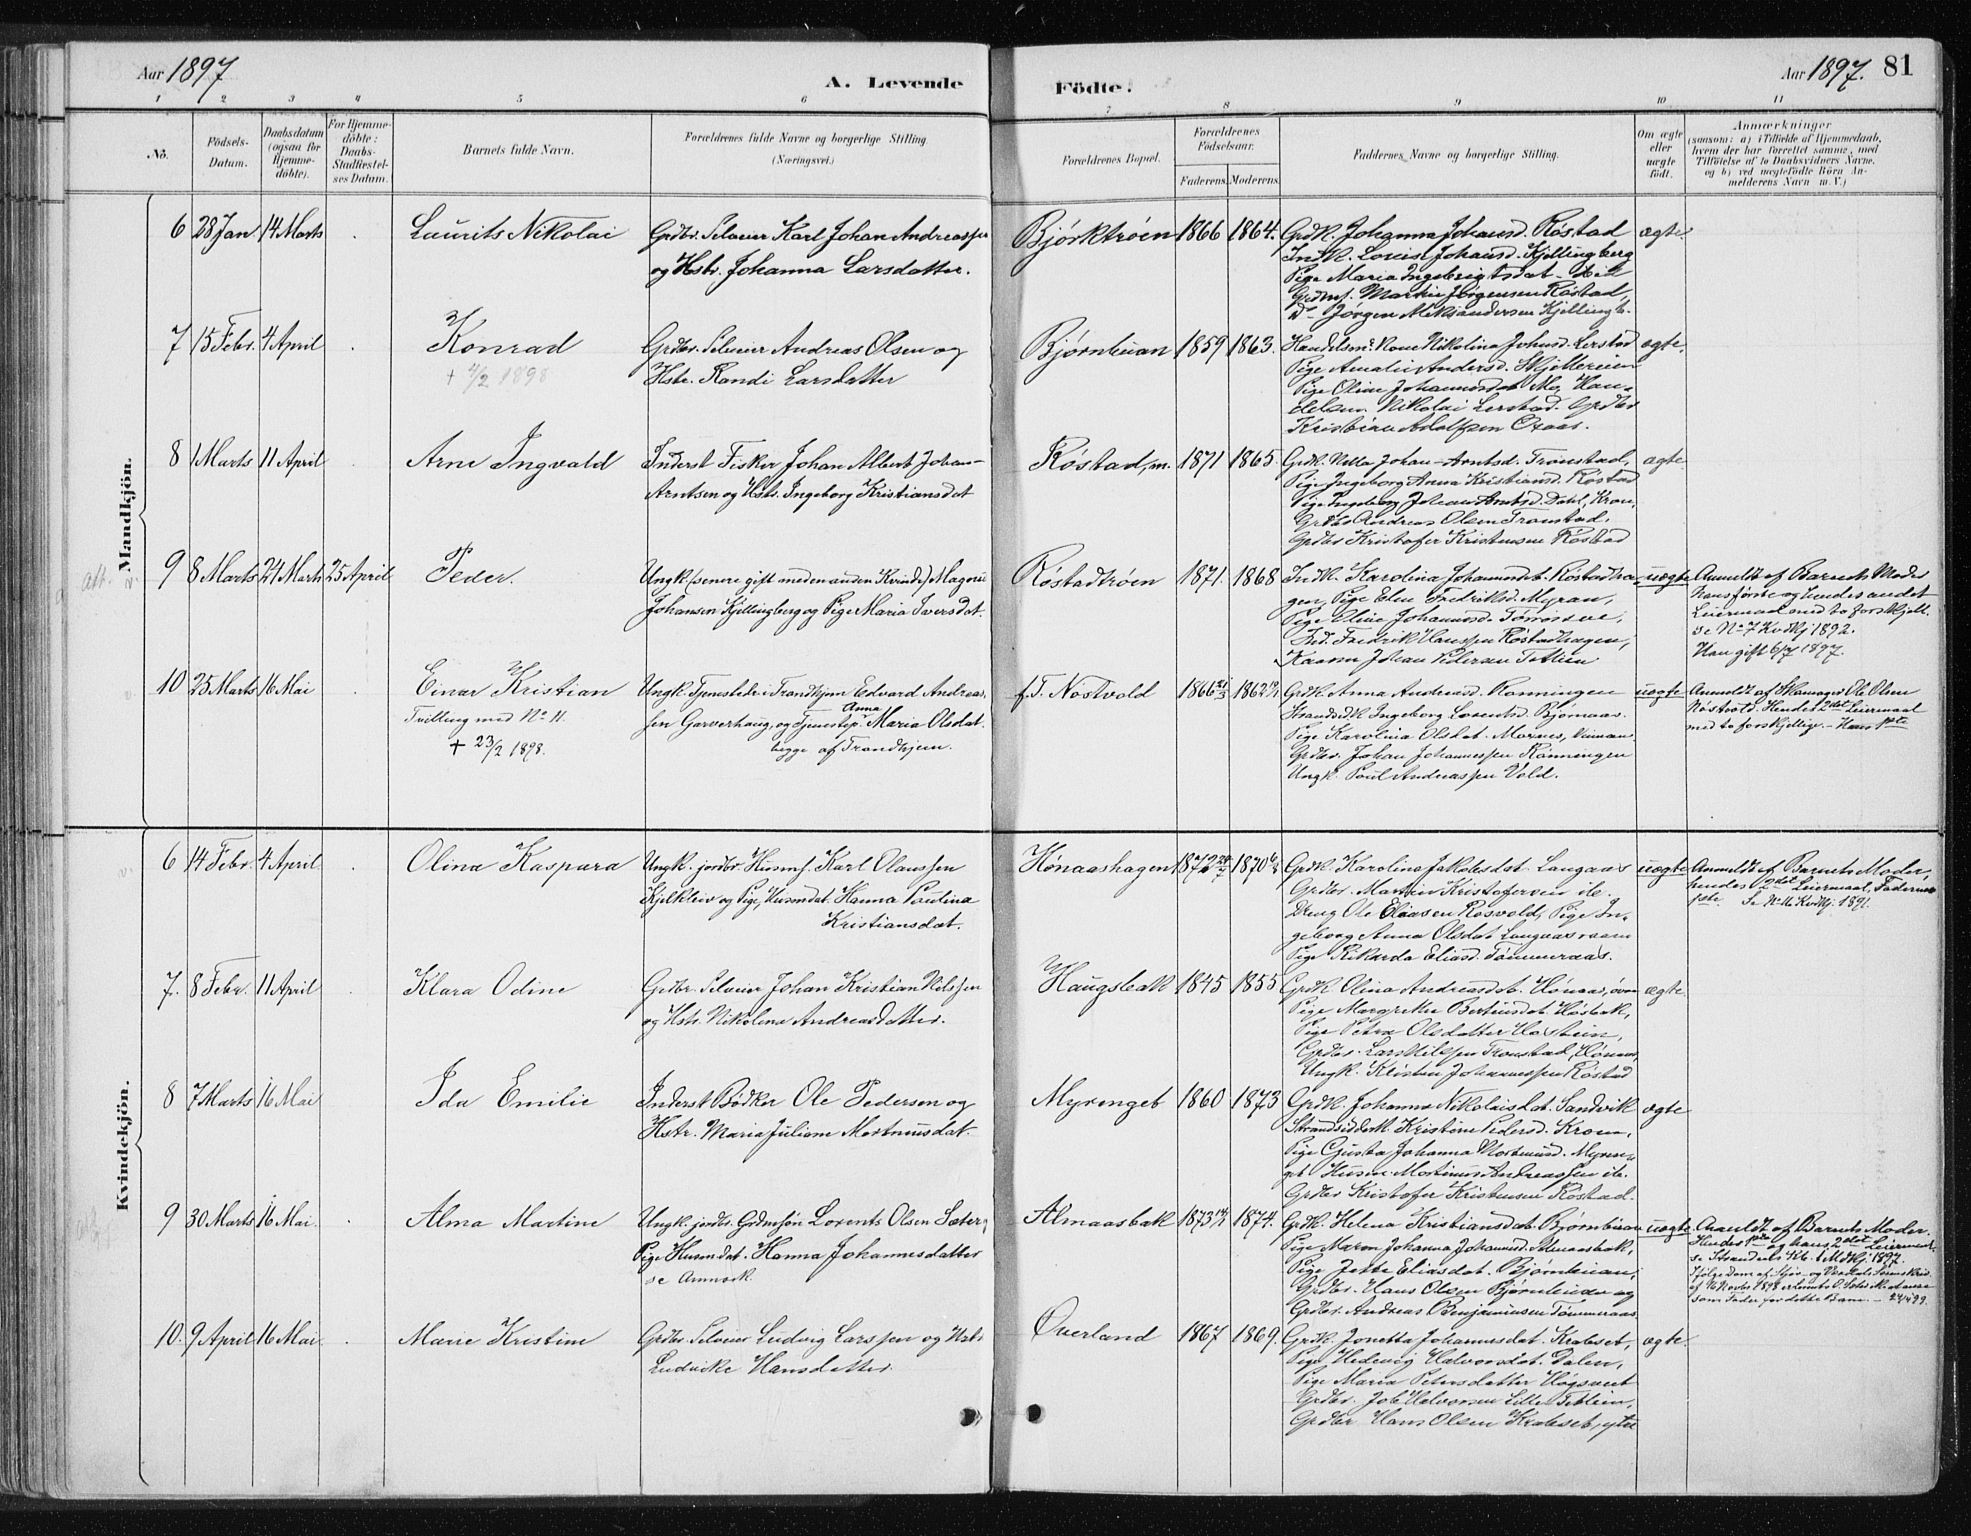 Aar 1897
A. Levende
Födte.
Aar 1897. 81
1 2 3 4 5 6 7 8 9 10 11
No.
Födsels-
Datum.
Daabsdatum
(ogsaa for
Hjemme-
döbte).
For Hjemme-
döbte:
Daabs-
Stadfæstel-
ses Datum.
Barnets fulde Navn.
Forældrenes fulde Navne og borgerlige Stilling
(Næringsvei.)
Forældrenes Bopæl.
Forældrenes
Födselsaar.
Faderens. Moderens.
Faddernes Navne og borgerlige Stilling.
Om ægte
eller
uægte
födt.
Anmærkninger
(saasom: a) i Tilfælde af Hjemmedaab,
hvem der har forrettet samme, med
Tilföielse af to Daabsvidners Navne,
og b) ved uægtefödte Börn An-
melderens Navn m. V.)
Mandkjön.
6 28 Jan. 14 Marts . Laurits Nikolai
Grdbr. Selveier Karl Johan Andreassen
og Hstr. Johanna Larsdatter.
Bjørktrøen 1866 1864.
Grdk. Johanna Johansd. Røstad
Indk. Louise Johansd. Kjellingberg
Pige Maria Ingebrigtsdat.
Grdms. Martin Jörgensen Røstad,
Do Jørgen Kjellingb.
ægte.
7 15 Febr. 4 April . Konrad
+ 4/2 1898
Grdbr. Selveier Andreas Olsen og
Hstr. Randi Larsdatter
Bjørnhuan 1859 1863.
Handelsm. Kone Nikolina Johnsd. Lerstad
Pige Amalie Andersd.
Pige Oline Johannesdat. Han-
delsm. Nikolai Lerstad. Grdbr
Kristian
ægte.
8 1 Marts 11 April . Arne Ingvald
Inderst Fisker Johan Albert Johan-
Arntsen og Hstr. Ingeborg Kristiansdat
Røstad, m. 1871 1865.
Grdk. Johan-Arntsd. Tronstad,
Pige Ingeborg Anna Kristiansd. Røstad
Pige Ingeborg Johan Arntsd. Dahl,
Grdbr Andreas Olsen Tronstad.
Grdbr Kristofer Kristensen Røstad
ægte
9 8 Marts 21 Marts 25 April Peder.
Ungk. (senere gift med en anden Kvinde) Magnus
Johansen Kjellingberg og Pige Maria Iversdat.
Røstadtrøen 1871. 1868
Indk. Karolina Johannesdat. Røstadha-
gen, Pige Elen Fredriksd. Myran,
Pige Oline Johannesd.
Ind. Fredrik Hanssen Røstadhagen,
Johan Pedersen Tetlien
uægte
Anmeldt af Barnets Moder
hans første og hendes andet
Leiermaal med to forskjell.
se No 7 Kvdkj 1892.
Han gift 6/7 1897.
10 25 Marts 16 Mai . Einar Kristian
Tvilling med No 11.
+ 23/2 1898.
Ungk. Tjenestedr. i Trondhjem Edvard Andreas-
sen Garverhaug, og Tjenestep. Anna Maria Olsdat.
begge af Trondhjem.
f. T. Nøstvold 1866 21/3 1862
Grdk. Anna Andreasd. Rønningen
Strandsdk Ingeborg Lorentsd. Bjørnaas.
Pige Karolina Olsdat.
Grdbr. Johan Johannessen Rønningen
Ungk. Paul Andreassen Vold.
uægte
Anmeldt af Skomager Ole Olsen
Nøstvold. Hendes 2det Leiermaal
med to forskjellige. - Hans 1ste
Kvindekjön.
6 14 Febr. 4 April . Olina Kaspara
Ungk. jordbr. Husmf. Karl Olaussen
og Pige, Husmdat. Hanna Paulina
Kristiansdat.
Hønaashagen 1872 1870
Grdk. Karolina Jakobsdat. Langaas
Grdbr. Martin Kristofersen ib.
Dreng Ole Eliasen Rosvold, Pige In-
geborg Anna Olsdat.
Pige Rikarda Eliasd. Tømmeraas.
uægte
Anmeldt af Barnets Moder,
hendes 2det Leiermaal, Faderens
1ste. Se No 16 Kvdkj. 1891.
7. 8 Febr. 11 April . Klara Odine
Grdbr. Selveier Johan Kristian Nilssen
og Hstr. Nikolina Andreasdatter.
Haugsbak 1845 1855
Grdk. Olina Andreasdat. Hønaas,
Pige Margrethe Berteusdat.
Pige Petra Olsdatter
Grdbr. Lars Nilssen Tronstad, Hønaas,
Ungk. Kristen Johannessen Røstad
ægte.
8 7 Marts 16 Mai Ida Emilie
Inderst Bødker Ole Pedersen og
Hstr. Maria Juliane Mortinusdat.
Myrenget 1860 1873
Grdk. Johanna Nikolaisdat. Sandvik
Kristine Pedersd.
Pige Gusta Johanna Mortinusd. Myren-
get Husm. Mortinus Andreassen ib.
Grdbr Kristofer Kristensen Røstad.
ægte
9 30 Marts 16 Mai. . Alma Martine
Ungk. jordbr. Grdmsøn Lorents Olsen Sæter,
Pige Husmdat. Hanna Johannesdatter
se Anmærk.
Almaasbak 1873 1874.
Grdk. Helena Kristiansdat. Bjørnhuan
Pige Maren Johanna Johannesd.
Pige Jette Eliasdat. Bjørnhuan,
Grdbr. Hans Olsen Bjørnhuan og
Grdbr. Andreas Benjaminsen Tømmeraas
uægte
Anmeldt af Barnets Moder.
Hendes 1ste og hans 2det Leiermaal.
se Strandens Kb. 1 Mdkj. 1897.
Ifølge Dom af
som Fader for dette Barn - 24/4 99.
10. 9 April 16 Mai. . Marie Kristine
Grdbr. Selveier Ludvig Larssen og Hstr
Ludvikke Hansdatter.
Øverland 1867 1869.
Grdk. Jonetta Johannesdat. Krabset,
Pige Hedevig Halvorsdat. Dalen,
Pige Maria Petersdatter
Grdbr. Job Halvorsen Lille Tetlien,
Grdbr Hans Olsen Krabset, ytre
ægte.